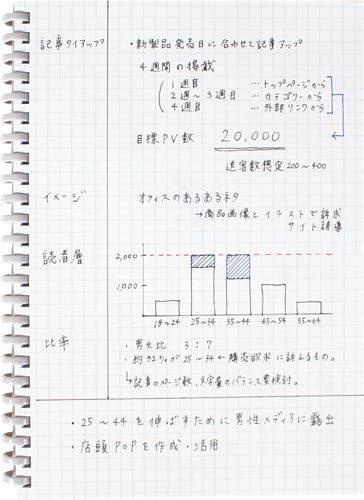 記事タイアップ
・新製品発売日に合わせて記事アップ
4週間の掲載
1週目 … トップページから
2週〜3週目 … カテゴリーから
4週目 … 外部リンクから
目標PV数 20,000
送客数想定200〜400
イメージ オフィスのあるあるネタ
→商品画像とイラストで訴求
サイト誘導
読者層
2,000
1,000
18〜24 25〜34 35〜44 45〜54 55〜64
比率
・男女比 3:7
・約72%が25〜34←購買欲求に訴えるもの。
↳記事のページ数、文字量のバランス要検討。
・25〜44を伸ばすために男性メディアに露出
・店頭POPを作成・活用